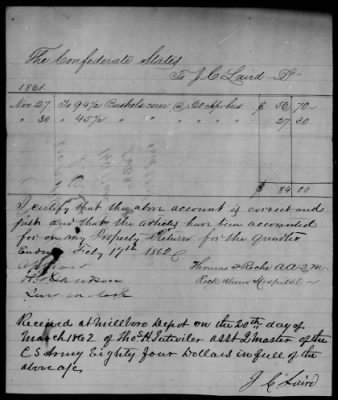 The Confederate States
To J C Laird Dr
1861
Nov 27 To 94½ Bushels corn @ 60 c per bus $ 56 70
" 30 " 45½ " " " " " 27 30
$ 84 00
I certify that the above account is correct and
just and that the articles have been accounted
for on my Property Returns for the quarter
Ending Feby 17th 1862
Thomas D Roche A A Q M
Rock Alum Hospital
Received at Millboro Depot on the 20th day of
March 1862 of Thos H Tutwiler asst 2 Master of the
C S Army Eighty four Dollars in full of the
above a/c
J C Laird